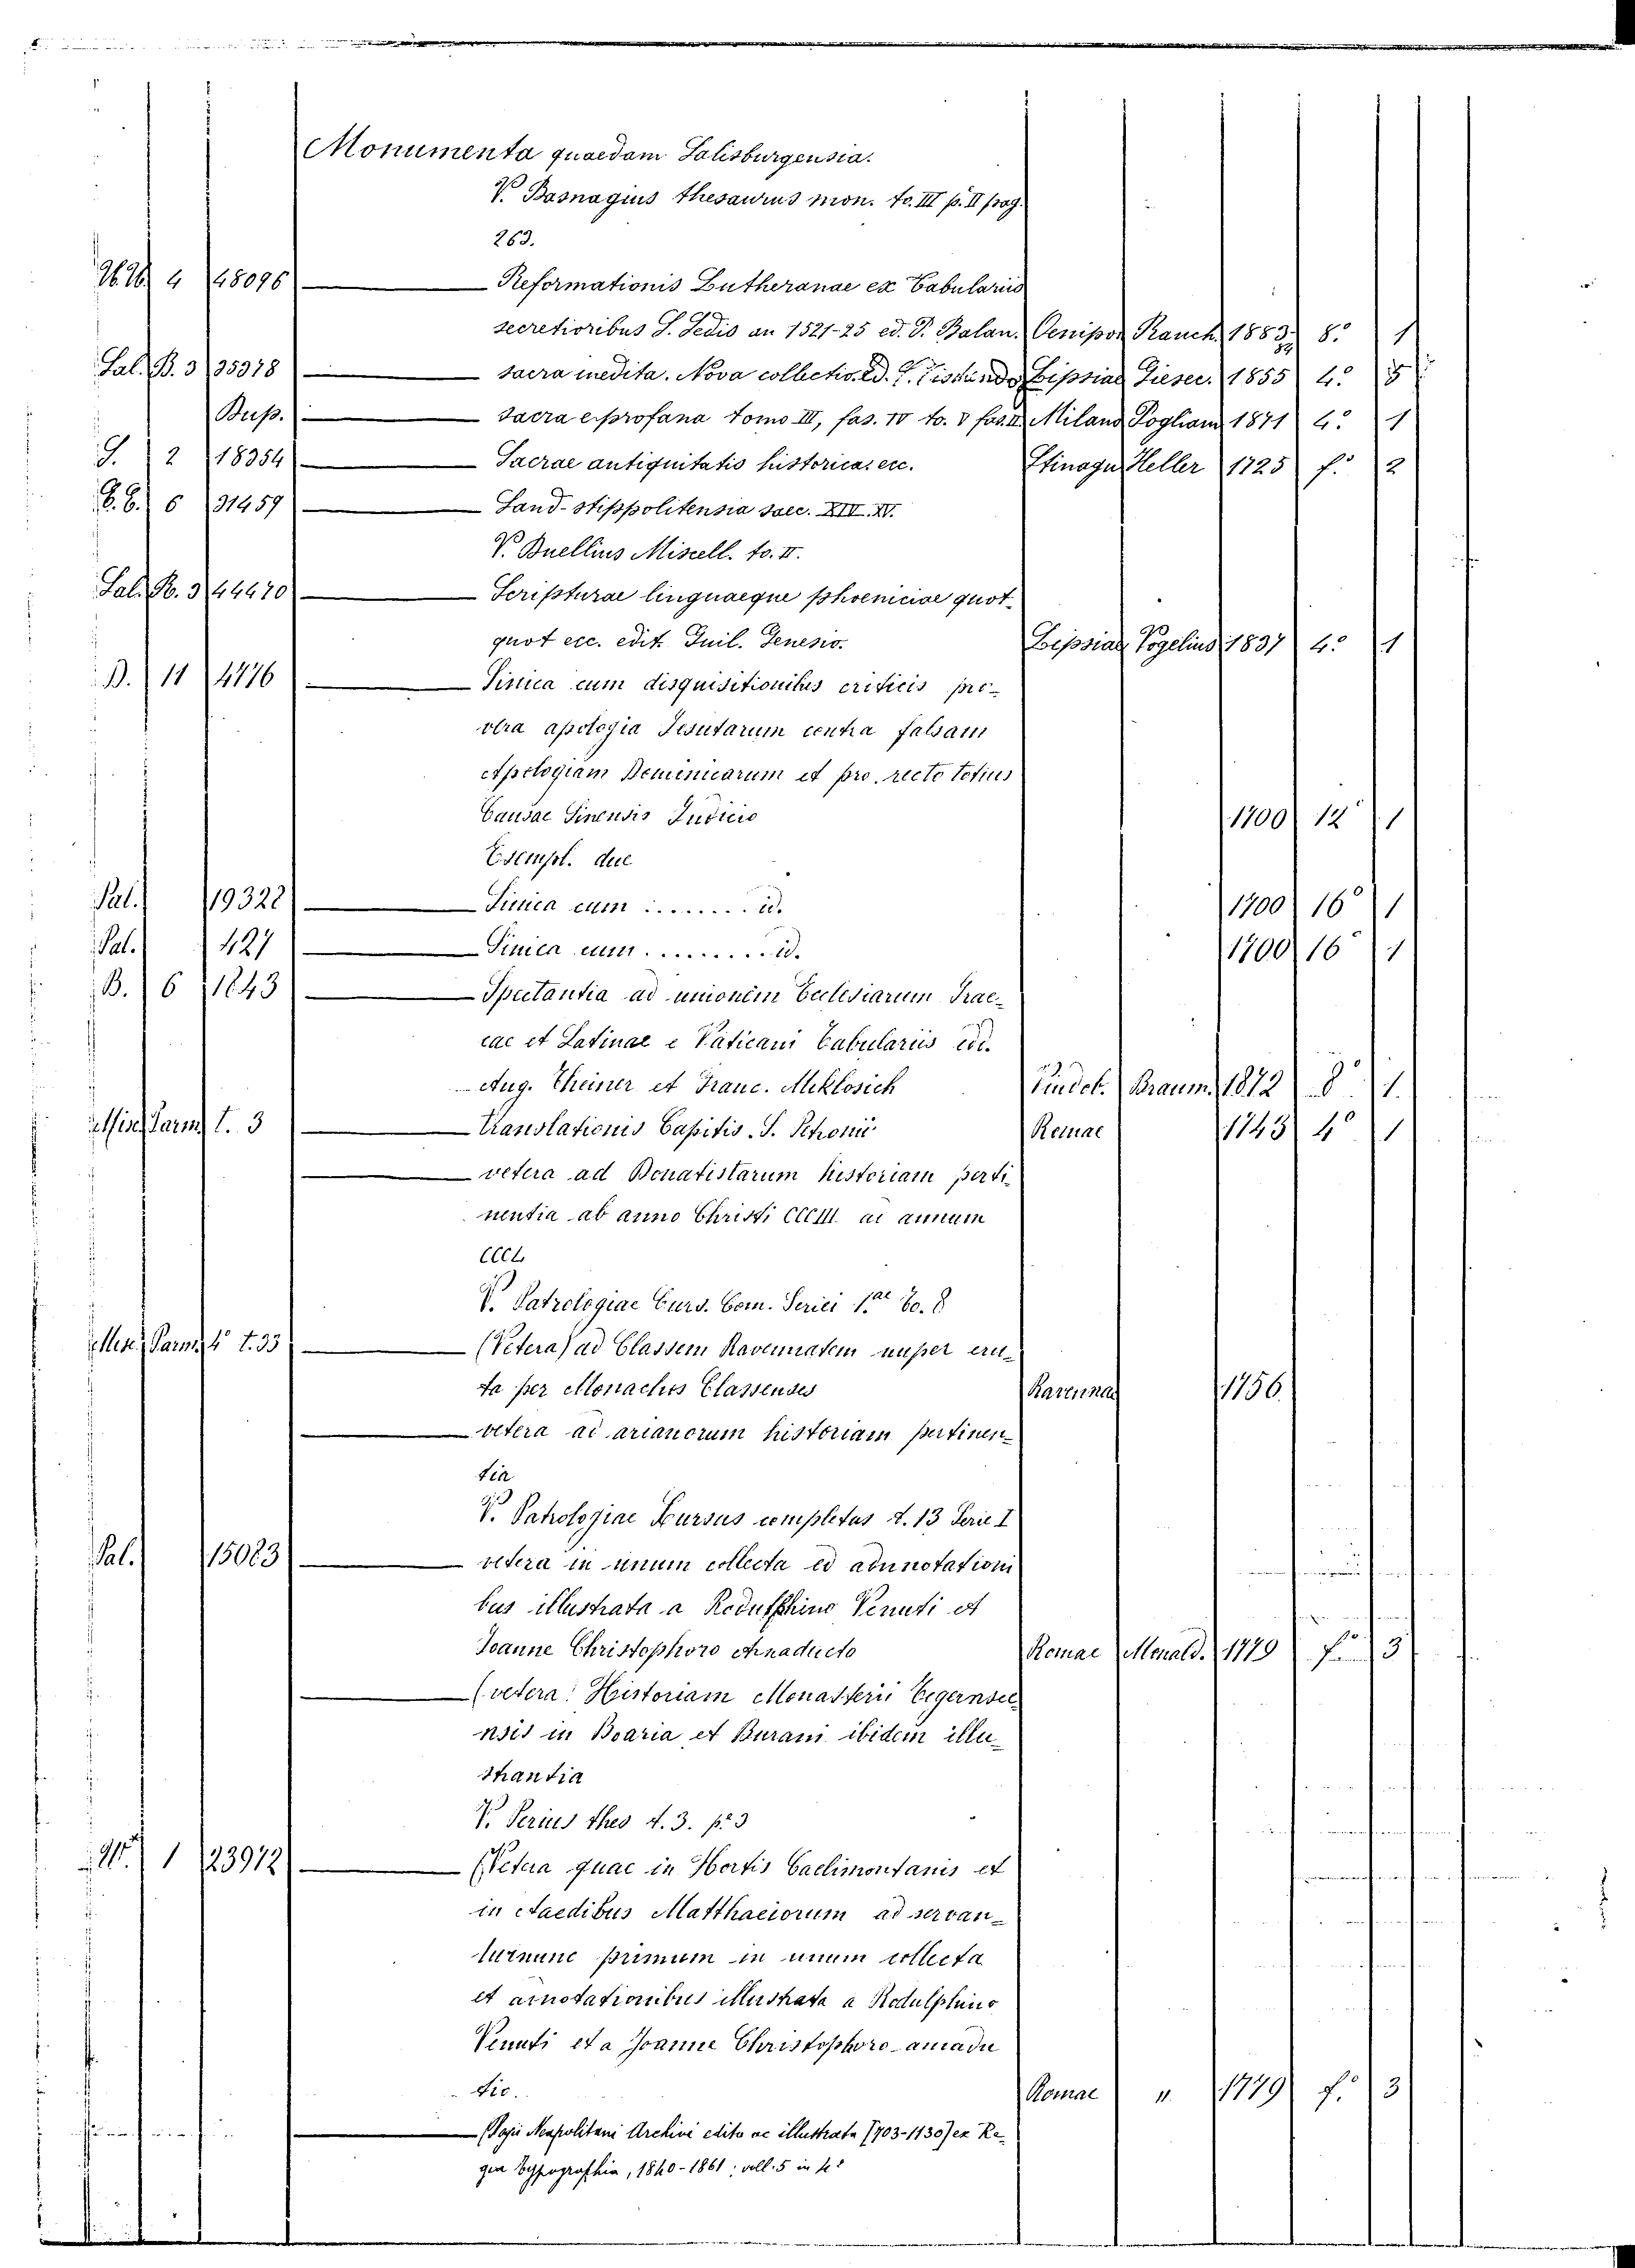 Monumenta quaedam Salisburgensia.
V. Basnagius thesaurus mon. to. III p. II pag.
263.
4 48096 Reformationis Lutheranae ex Tabulariis
secretioribus S. Sedis an 1521-25 ed. P. Balan. Oenipon Rauch 1883 84 8.° 1
Sal. B. 3 35378 sacra inedita. Nova collectio. ed. Lipsiae Gieser. 1855 4.° 5
Bup. Sacra e profana tomo III, fas. IV to. V fas. II Milano Pogliani 1871 4.° 1
S. 2 18354 Sacrae antiquitatis historica, ecc. Heller 1725 f.° 2
6 31459 Sand-Hippolitensia saec. XIV. XV.
V. Buellius Miscell. to. II.
Sal. B. 3 44470 Scripturae linguaeque phoeniciae quot-
quot ecc. edit. Guil. Genesio. Lipsiae Vogelius 1837 4.° 1
B. 11 4776 Sinica cum disquisitionibus criticis pro
vera apologia Jesuitarum contra falsam
Apologiam Dominicarum et pro recto totius
Causae Sinensis Judicio 1700 12° 1
Esempl. due
Pal. 19322 Sinica cum ........ id. 1700 16° 1
Pal. 427 Sinica cum ......... id. 1700 16° 1
B. 6 1843 Spectantia ad unionem Ecclesiarum Grae-
cae et Latinae e Vaticani Tabulariis edi.
Aug. Theiner et Franc. Miklosich Vindob. Braum. 1872 8° 1
Misc. Parm. t. 3 Translationis Capitis S. Petronii Romae 1743 4° 1
vetera ad Donatistarum historiam perti-
nentia ab anno Christi CCCIII ad annum
CCCL
V. Patrologiae Curs. Com. Serici 1.ae to. 8
Misc. Parm. 4° t. 33 (Vetera) ad Classem Ravennatem nuper eru-
ta per Monachos Classenses Ravennae 1756
vetera ad arianorum historiam pertinen-
tia
V. Patrologiae Cursus completus t. 13 Serie I
Pal. 15083 vetera in unum collecta ed adnotationi
bus illustrata a Rodulphino Venuti et
Joanne Christophoro Amaducto Romae Monald. 1779 f.° 3
(vetera) Historiam Monasterii Tegernsee-
nsis in Boaria et Burani ibidem illu-
strantia
V. Perius thes t. 3. p.e 3
1 23972 (Vetera quae in Hortis Caelimontanis et
in Aaedibus Matthaeiorum adservan-
turnunc primum in unum collecta
et adnotationibus illustrata a Rodulphino
Venuti et a Joanne Christophoro amadu
tio. Romae " 1779 f.° 3
Regii Neapolitani Archivi edito ac illustrata (703-1130) ex Re-
gia Typographia, 1840-1861; voll. 5 in 4°